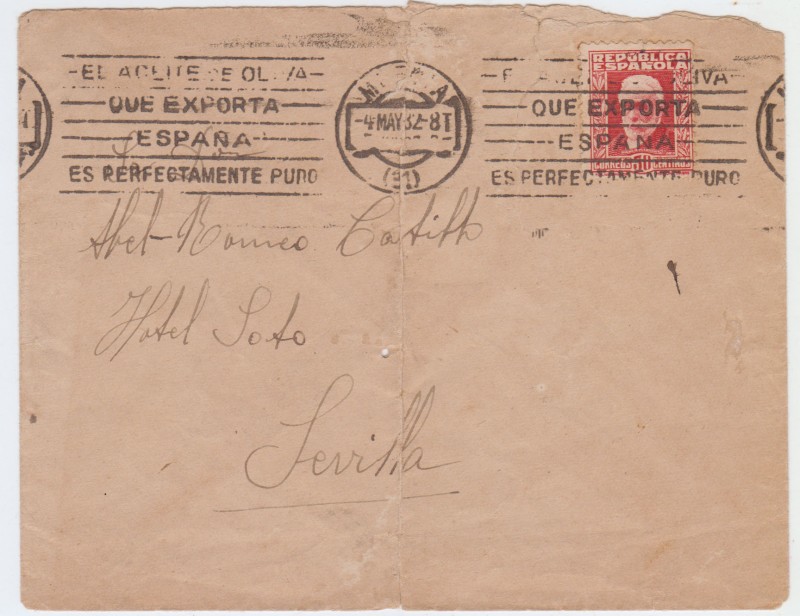 EL ACEITE DE OLIVA
QUE EXPORTA
ESPAÑA
ES PERFECTAMENTE PURO
-4 MAY 32-8T
QUE EXPORTA
ESPAÑA
ES PERFECTAMENTE PURO
REPÚBLICA
ESPAÑOLA
CORREOS 30 CENTIMOS
Abel-Romeo Castillo
Hotel Soto
Sevilla